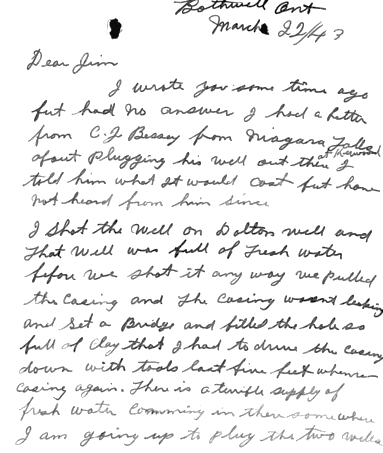 Bothwell Ont
March 22/43
Dear Jim
I wrote you some time ago
but had no answer I had a letter
from C.J Bessey from Niagara Falls
about Plugging his well out there I
at Sherwood
told him what It would Cost but have
not heard from him since
I Shot the Well on Dolton well and
That Well was full of Fresh water
before we shot it any way we pulled
the Casing and The Casing wasnt leaking
and set a Bridge and filled the hole so
full of Clay that I had to drive the Casing
down with tools last five feet when
casing again. There is a terrible supply of
fresh water Comming in there somewhere
I am going up to plug the two wells